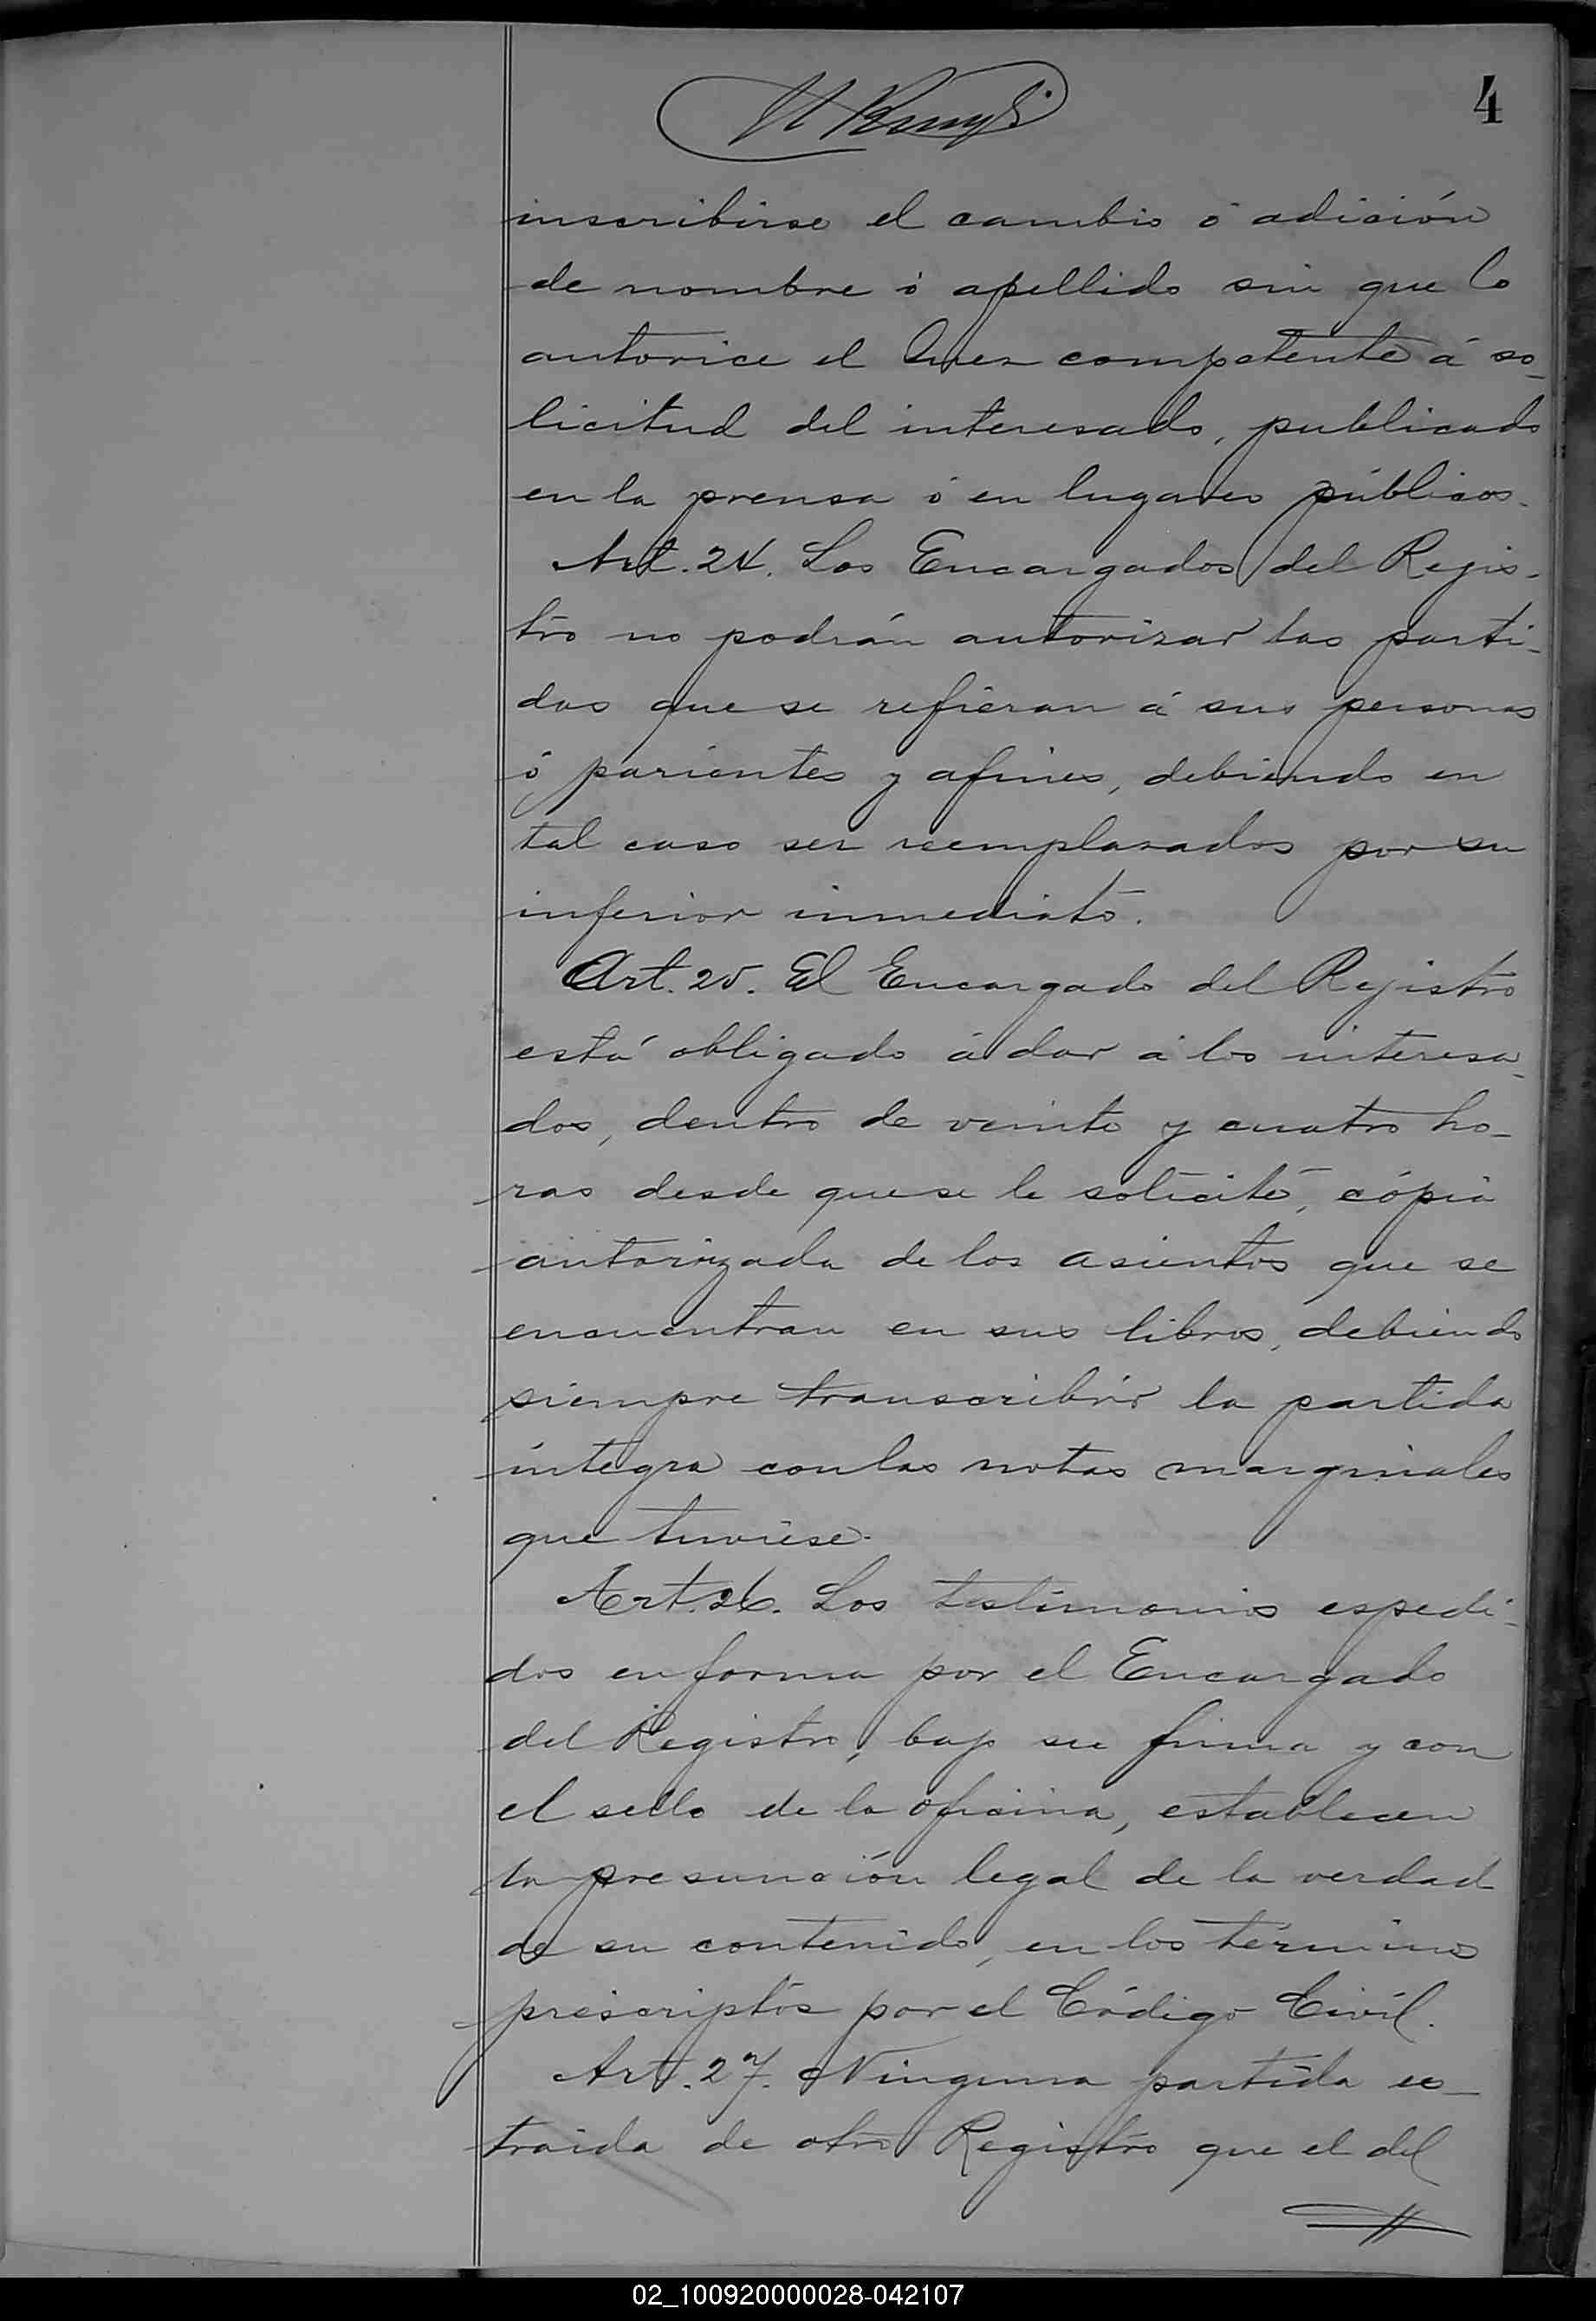 4
inscribirse el cambio ó adición
de nombre ó apellido sin que lo
autorice el Juez competente á so_
licitud del interesado, publicado
en la prensa ó en lugares públicos.
Art. 24. Los Encargados del Regis-
tro no podrán autorizar las parti_
das que se refieran á sus personas
ó parientes y afines, debiendo en
tal caso ser reemplazados por su
inferior inmediato.
Art. 25. El Encargado del Rejistro
está obligado á dar á los interesa_
dos, dentro de veinte y cuatro ho_
ras desde que se le solicite, cópia
autorizada de los asientos que se
encuentran en sus libros, debiendo
siempre transcribir la partida
íntegra con las notas marginales
que tuviese.
Art. 26. Los testimonios espedi_
dos en forma por el Encargado
del Registro, bajo su firma y con
el sello de la oficina, establecen
la presunción legal de la verdad
de su contenido, en los términos
prescriptos por el Código Civil.
Art. 27. Ninguna partida es_
traida de otro Registro que el del
02_100920000028-042107